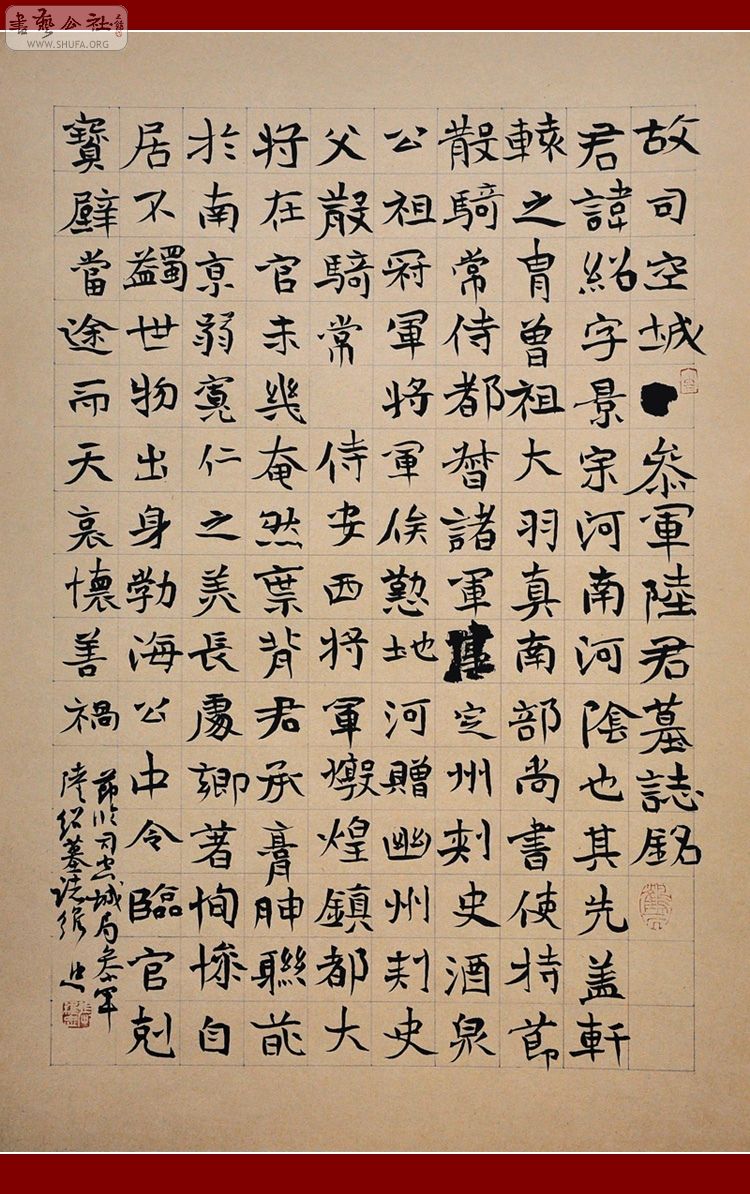 書藝公社
WWW.SHUFA.ORG
故司空城參軍陸君墓誌銘
君諱紹字景宗河南河陰也其先盖軒
轅之胄曾祖大羽真南部尚書使持節
散騎常侍都督諸軍定州刺史酒泉
公祖冠軍将軍俟懃地河贈幽州刺史
父散騎常侍安西将軍燉煌鎮都大
将在官未幾奄然棄背君承膏腴聯華
於南京弱寬仁之美長處卿著恂恂自
居不蠲世物出身勃海公中令臨官剋
寶璧當途而天哀懷善禍
節臨司空城局參軍
陸紹墓誌銘